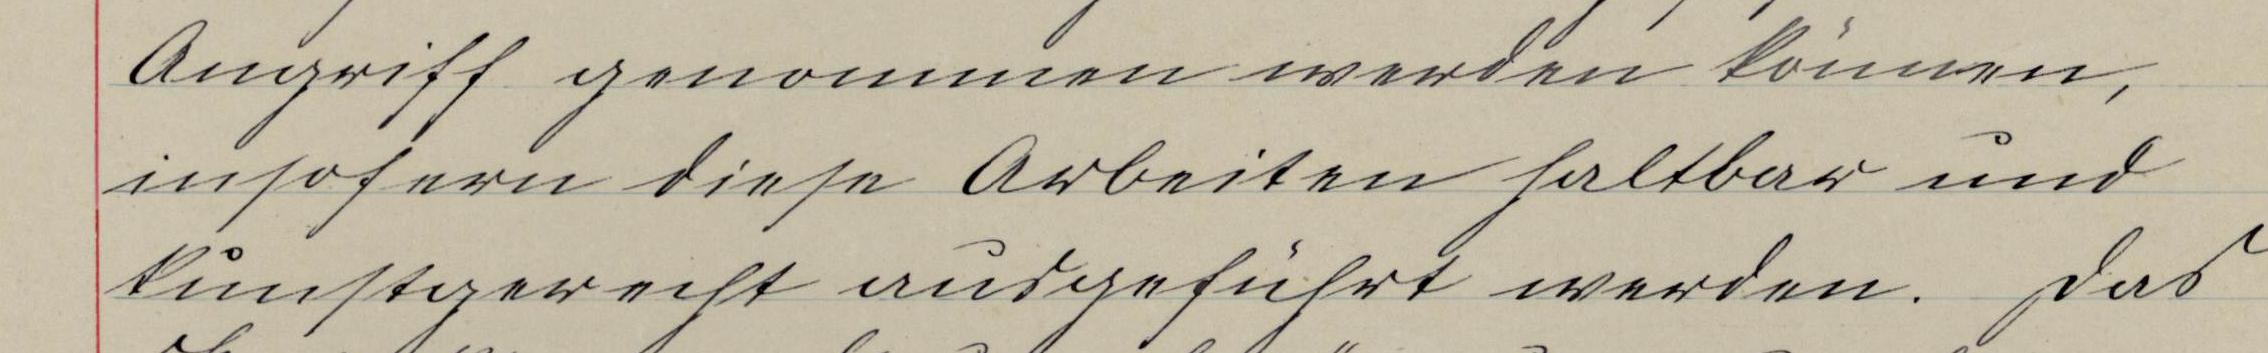 Angriff genommen werden können,
insofern diese Arbeiten haltbar und
kunstgerecht ausgeführt werden. Das